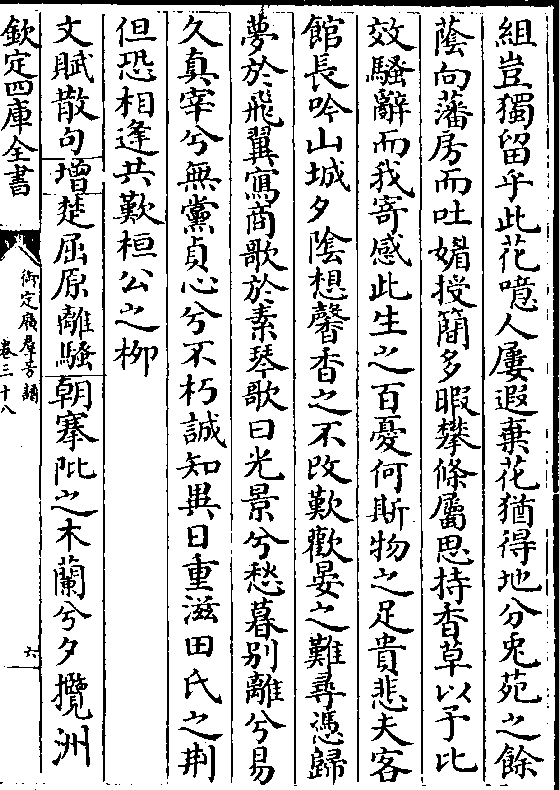 組豈獨留乎此花噫人屢遐棄花猶得地分兎苑之餘
蔭向藩房而吐媚授簡多暇攀條屬思持香草以予比
效騷辭而我寄感此生之百憂何斯物之足貴悲夫客
館長吟山城夕陰想馨香之不改歎歡晏之難尋憑歸
夢於飛翼寫商歌於素琴歌曰光景兮愁暮别離兮易
久真宰兮無黨貞心兮不朽誠知異日重滋田氏之荆
但恐相逢共歎桓公之柳
文賦散句増楚屈原離騷朝搴阰之木蘭兮夕攬洲
欽定四庫全書
御定廣羣芳譜
卷三十八
六